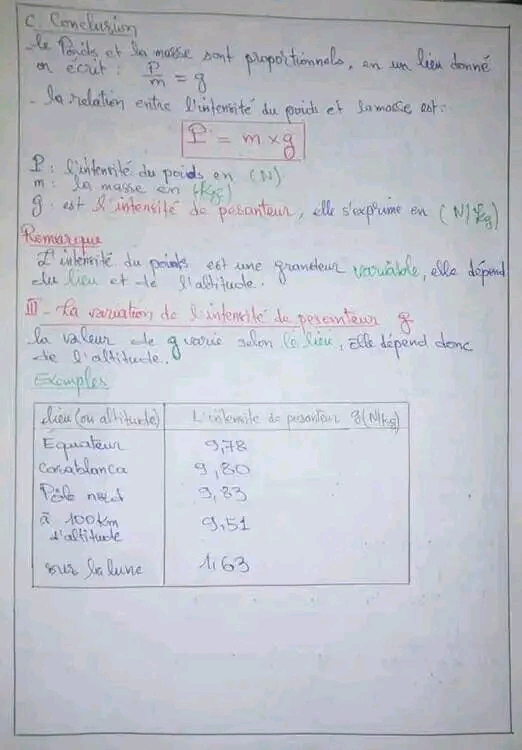 C. Conclusion
- le Poids et la masse sont proportionnels, en un lieu donné
on écrit : P/m = g
- la relation entre l'intensité du poids et la masse est :
P = m x g
P : l'intensité du poids en (N)
m : la masse en (Kg)
g : est l'intensité de pesanteur, elle s'exprime en (N/Kg)
Remarque
L'intensité du poids est une grandeur variable, elle dépend
du lieu et de l'altitude.
III - La variation de l'intensité de pesanteur g
la valeur de g varie selon le lieu, Elle dépend donc
de l'altitude.
Exemples
Lieu (ou altitude) L'intensité de pesanteur g(N/Kg)
Equateur 9,78
Casablanca 9,80
Pôle nord 9,83
à 100km 9,51
d'altitude
sur la lune 1,63